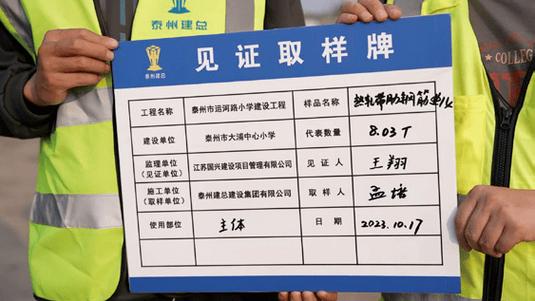 泰州建总
COLLEG
泰州建总
见证取样牌
工程名称 泰州市运河路小学建设工程 样品名称 热轧带肋钢筋
建设单位 泰州市大浦中心小学 代表数量 8.03T
监理单位
(见证单位) 江苏国兴建设项目管理有限公司 见证人 王翔
施工单位
(取样单位) 泰州建总建设集团有限公司 取样人 孟培
使用部位 主体 日期 2023.10.17